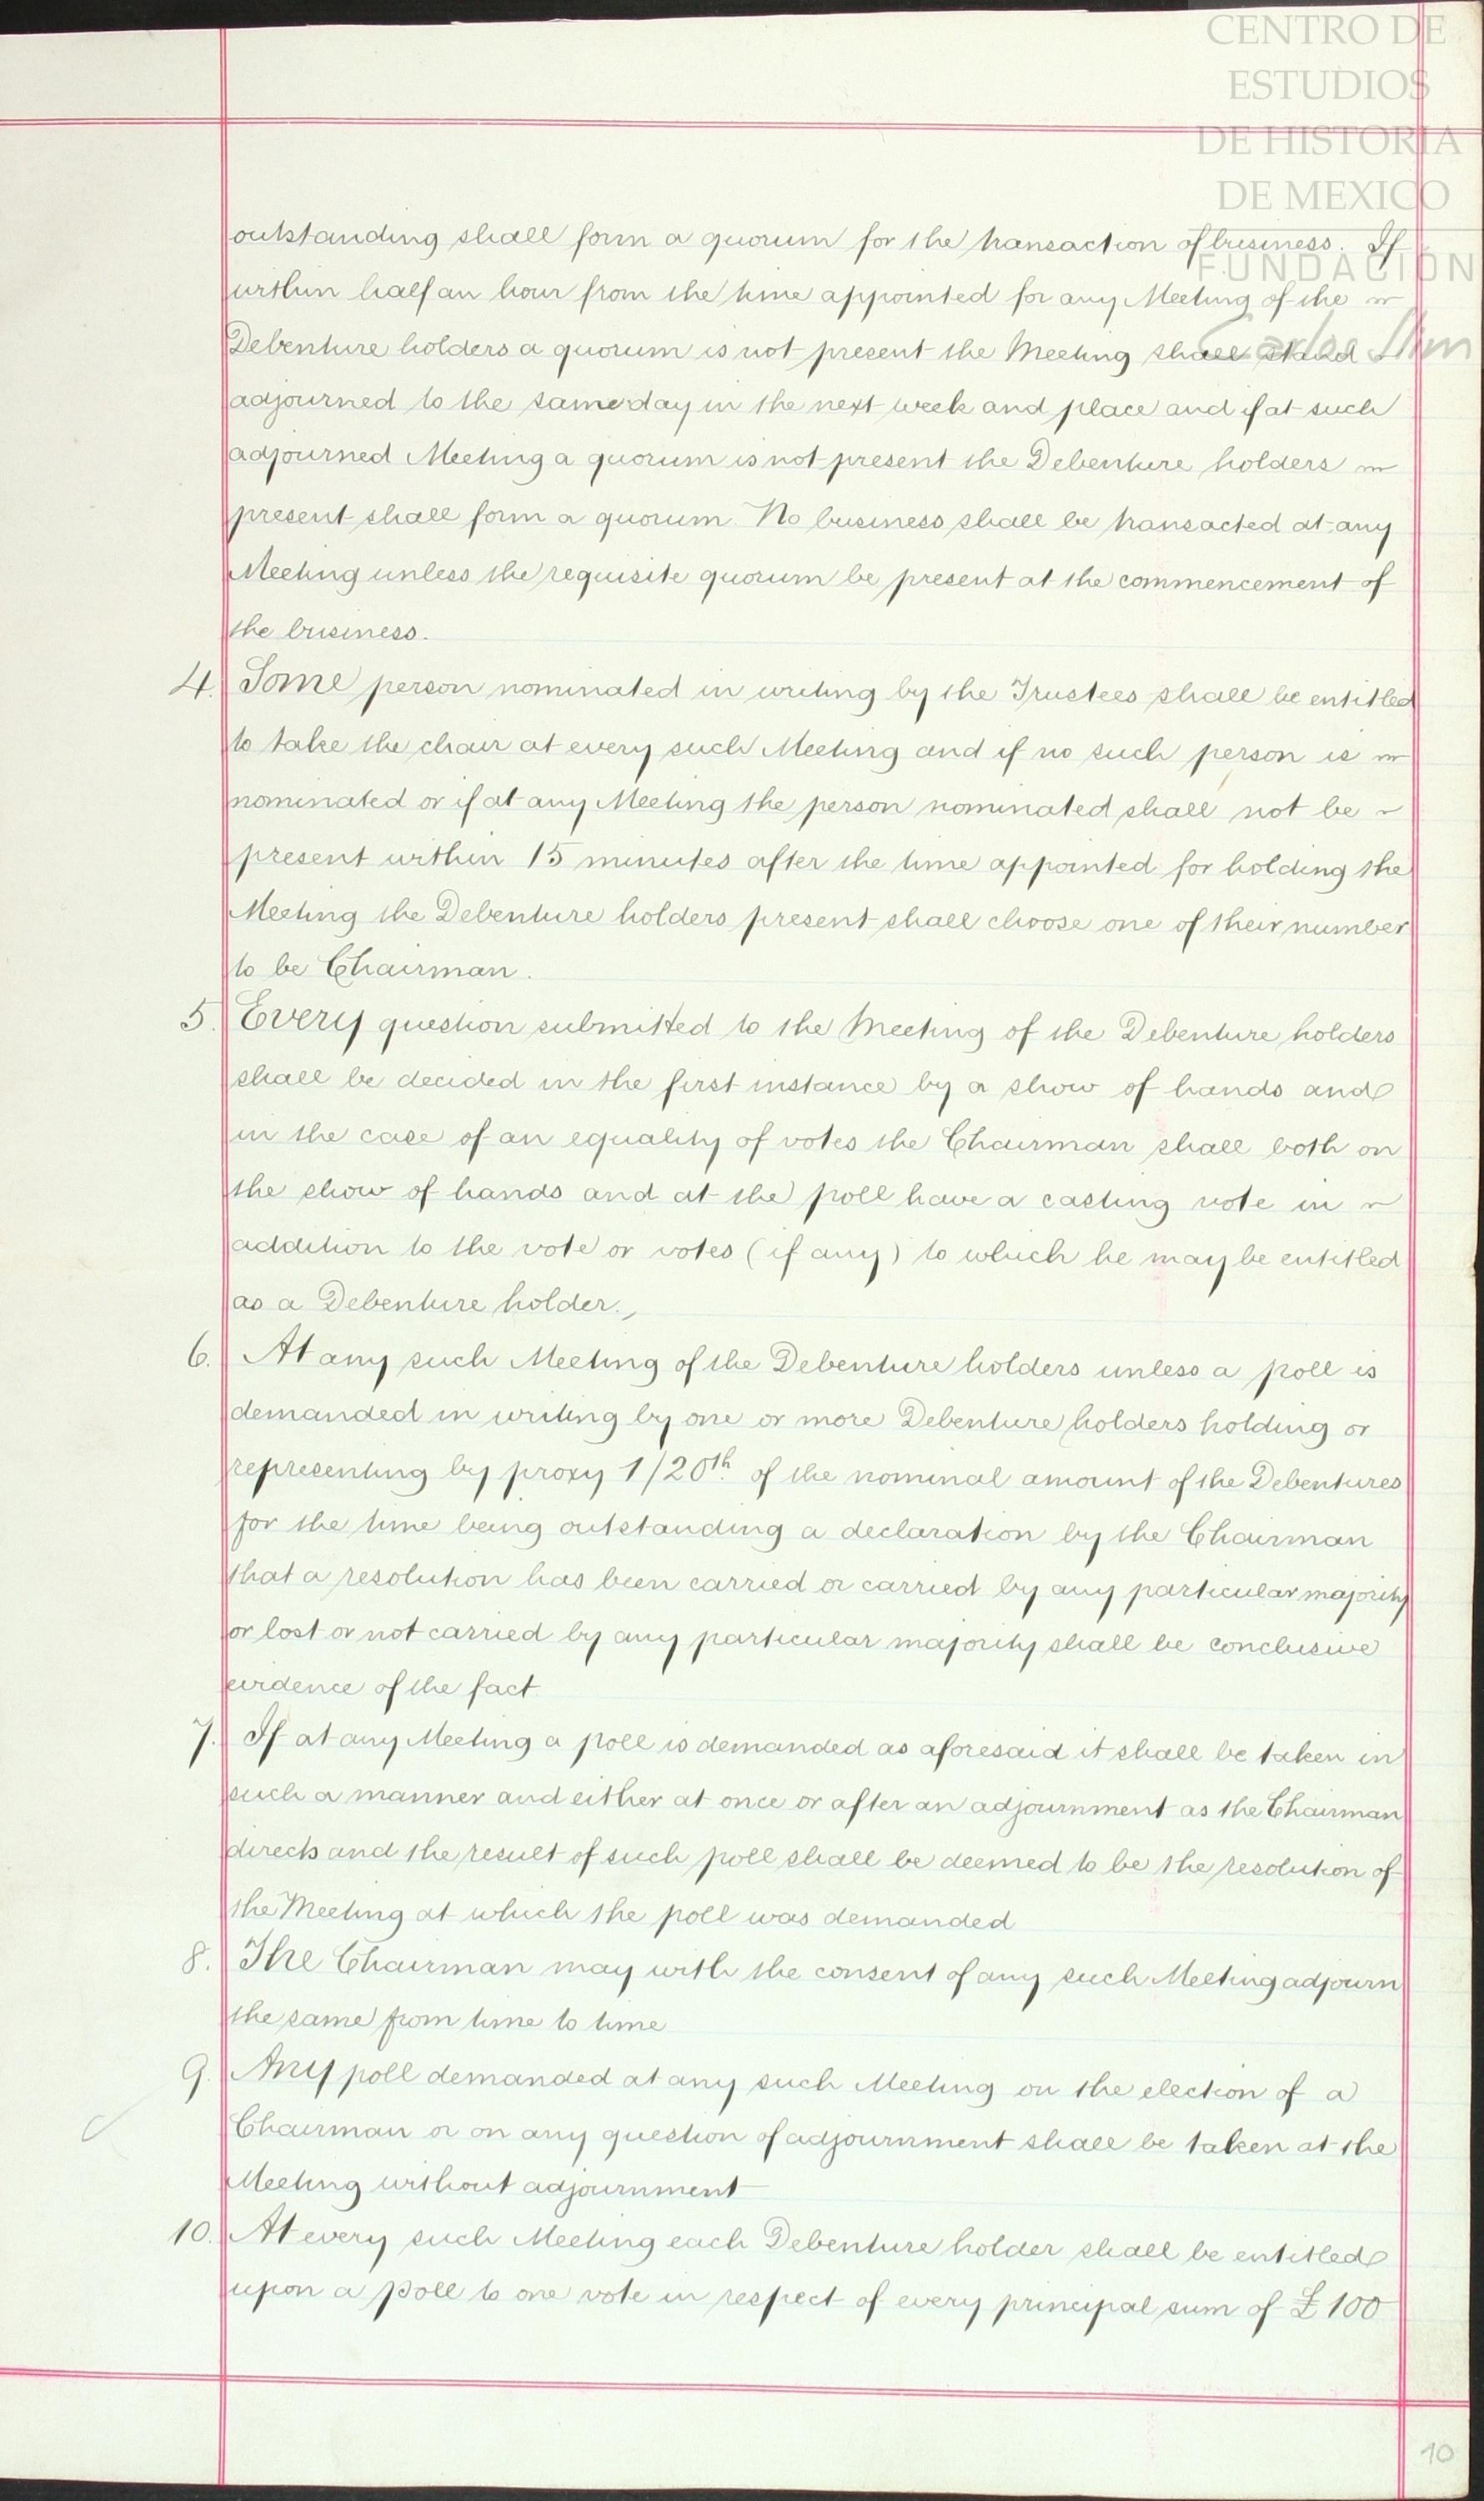 CENTRO DE
ESTUDIOS
DE HISTORIA
DE MEXICO
FUNDACIÓN
Carlos Slim
outstanding shall form a quorum for the transaction of business. If
within half an hour from the time appointed for any Meeting of the
Debenture holders a quorum is not present the Meeting shall stand
adjourned to the same day in the next week and place and if at such
adjourned Meeting a quorum is not present the Debenture holders
present shall form a quorum. No business shall be transacted at any
Meeting unless the requisite quorum be present at the commencement of
the business.
4. Some person nominated in writing by the Trustees shall be entitled
to take the chair at every such Meeting and if no such person is
nominated or if at any Meeting the person nominated shall not be
present within 15 minutes after the time appointed for holding the
Meeting the Debenture holders present shall choose one of their number
to be Chairman.
5. Every question submitted to the Meeting of the Debenture holders
shall be decided in the first instance by a show of hands and
in the case of an equality of votes the Chairman shall both on
the show of hands and at the poll have a casting vote in
addition to the vote or votes (if any) to which he may be entitled
as a Debenture holder.
6. At any such Meeting of the Debenture holders unless a poll is
demanded in writing by one or more Debenture holders holding or
representing by proxy 1/20th. of the nominal amount of the Debentures
for the time being outstanding a declaration by the Chairman
that a resolution has been carried or carried by any particular majority
or lost or not carried by any particular majority shall be conclusive
evidence of the fact.
7. If at any Meeting a poll is demanded as aforesaid it shall be taken in
such a manner and either at once or after an adjournment as the Chairman
directs and the result of such poll shall be deemed to be the resolution of
the Meeting at which the poll was demanded
8. The Chairman may with the consent of any such Meeting adjourn
the same from time to time
9. Any poll demanded at any such Meeting on the election of a
Chairman or on any question of adjournment shall be taken at the
Meeting without adjournment
10. At every such Meeting each Debenture holder shall be entitled
upon a poll to one vote in respect of every principal sum of £100
10